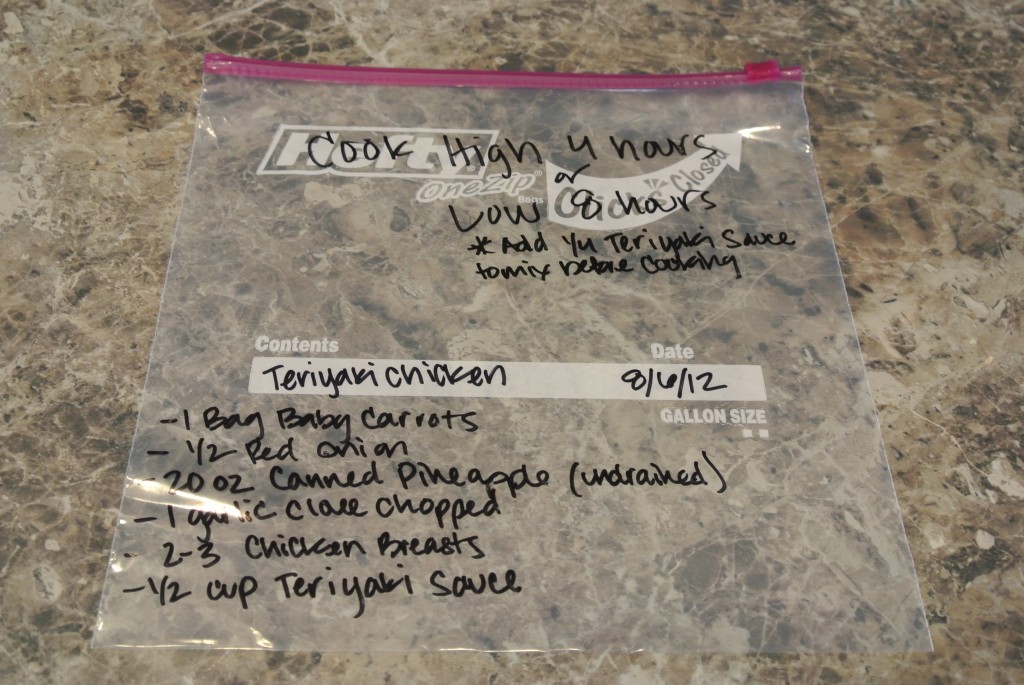 Hefty
Cook High 4 hours
OneZip®
Bags
or
Click Closed
Low 8 hours
* Add 1/4 Teriyaki Sauce
to mix before cooking
Contents
Date
Teriyaki Chicken 8/6/12
GALLON SIZE
- 1 Bag Baby Carrots
- 1/2 Red onion
- 20 oz Canned Pineapple (undrained)
- 1 garlic clove chopped
- 2-3 Chicken Breasts
- 1/2 cup Teriyaki Sauce